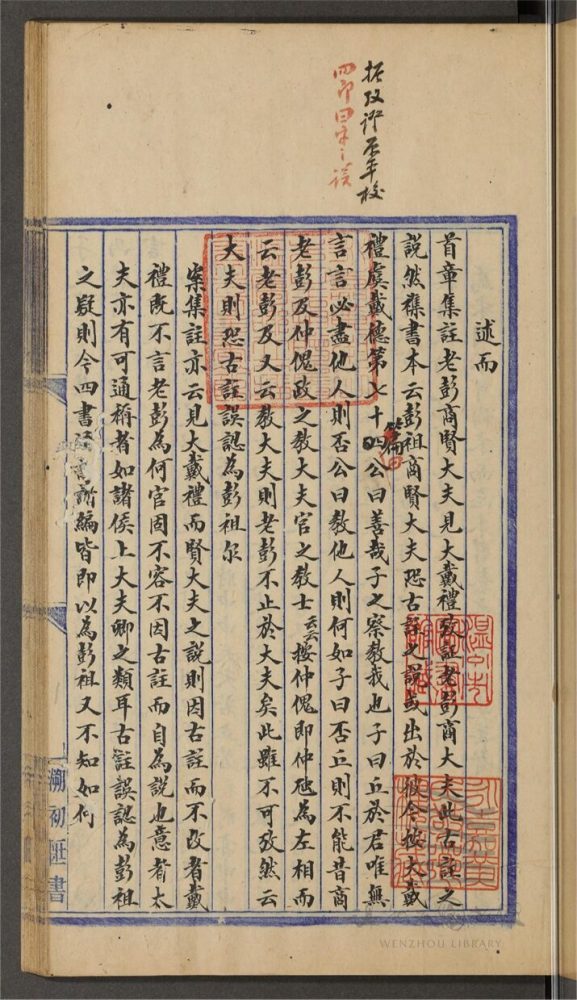 據改衍不年校
四郎曰字之誤
述而
首章集註老彭商賢大夫見大戴禮攷証老彭商大夫此古註之
說然舊書本云彭祖商賢大夫恐古註之說或出於彼今按大戴
禮虞戴德第七十篇四公曰善哉子之察教我也子曰丘於君唯無
言言必盡他人則否公曰教他人則何如子曰否丘則不能昔商
老彭及仲傀政之教大夫官之教士云云按仲傀即仲虺為左相而
云老彭及又云教大夫則老彭不止於大夫矣此雖不可攷然云
大夫則恐古註誤認為彭祖尔
案集註亦云見大戴禮而賢大夫之說則因古註而不改者戴
禮既不言老彭為何官固不容不因古註而自為說也意者太
夫亦有可通稱者如諸侯上大夫卿之類耳古註誤認為彭祖
之疑則今四書所編皆即以為彭祖又不知如何
溯初匧書
WENZHOU LIBRARY